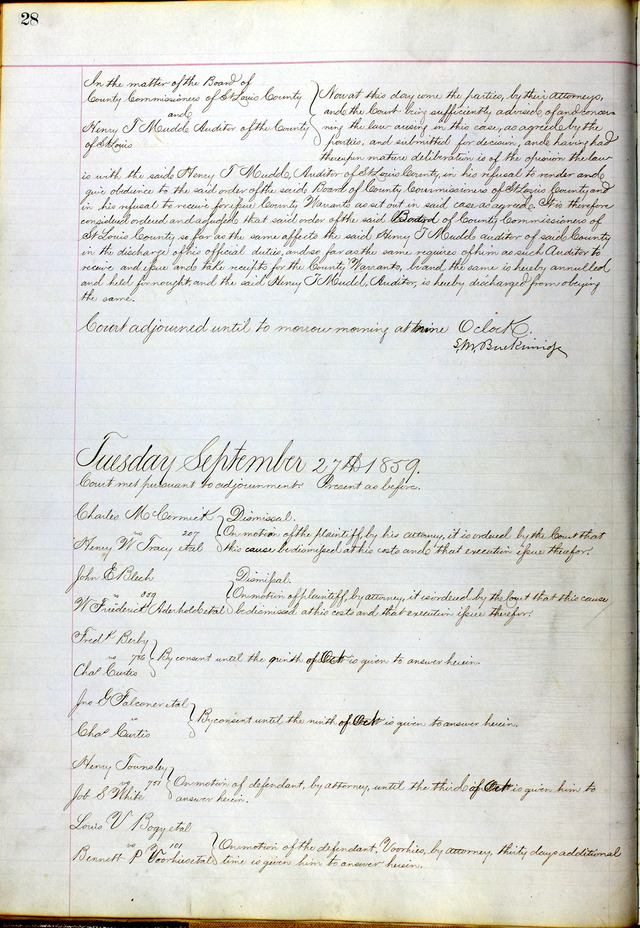 28
In the matter of the Board of
County Commissioners of St Louis County
and
Henry T Mudd Auditor of the County
of St Louis
Now at this day come the parties, by their attorneys,
and the Court being sufficiently advised of and concer
ning the law arising in this case, as agreed by the
parties, and submitted for decision, and having had
thereupon mature deliberation is of the opinion the law
is with the said Henry T Mudd, Auditor of St Louis County, in his refusal to render and
give obedience to the said order of the said Board of County Commissioners of St Louis County, and
in his refusal to receive for issue County Warrants as set out in said case as agreed. It is therefore
considered ordered and adjudged that said order of the said Board of County Commissioners of
St Louis County so far as the same affects the said Henry T Mudd auditor of said County
in the discharge of his official duties, and so far as the same requires of him as such Auditor to
receive and issue and take receipts for the County Warrants, be and the same is hereby annulled
and held for nought, and the said Henry T Mudd, Auditor, is hereby discharged from obeying
the same.
Court adjourned until to morrow morning at nine O clock.
Tuesday September 27th 1859.
Court met pursuant to adjournment. Present as before.
Charles McCormick
vs 207
Henry W Tracy etal
Dismissal.
On motion of the plaintiff, by his attorney, it is ordered by the Court that
this cause be dismissed at his costs and that execution issue therefor.
John E Blech
W Friederick Aderholdt etal
Dismissal.
On motion of plaintiff, by attorney, it is ordered by the Court that this cause
be dismissed at his costs and that execution issue therefor.
Fredk Berby
vs 706
Chas Curtis
By consent until the ninth of Oct is given to answer herein
Jno G Falconer etal
vs
Chas Curtis
By consent until the ninth of Oct is given to answer herein.
Henry Townsley
vs 751
Job S White
On motion of defendant, by attorney, until the third of Oct is given him to
answer herein.
Louis V Bogy etal
vs 101
Bennett P Voorhies etal
On motion of the defendant, Voorhies, by attorney, thirty days additional
time is given him to answer herein.